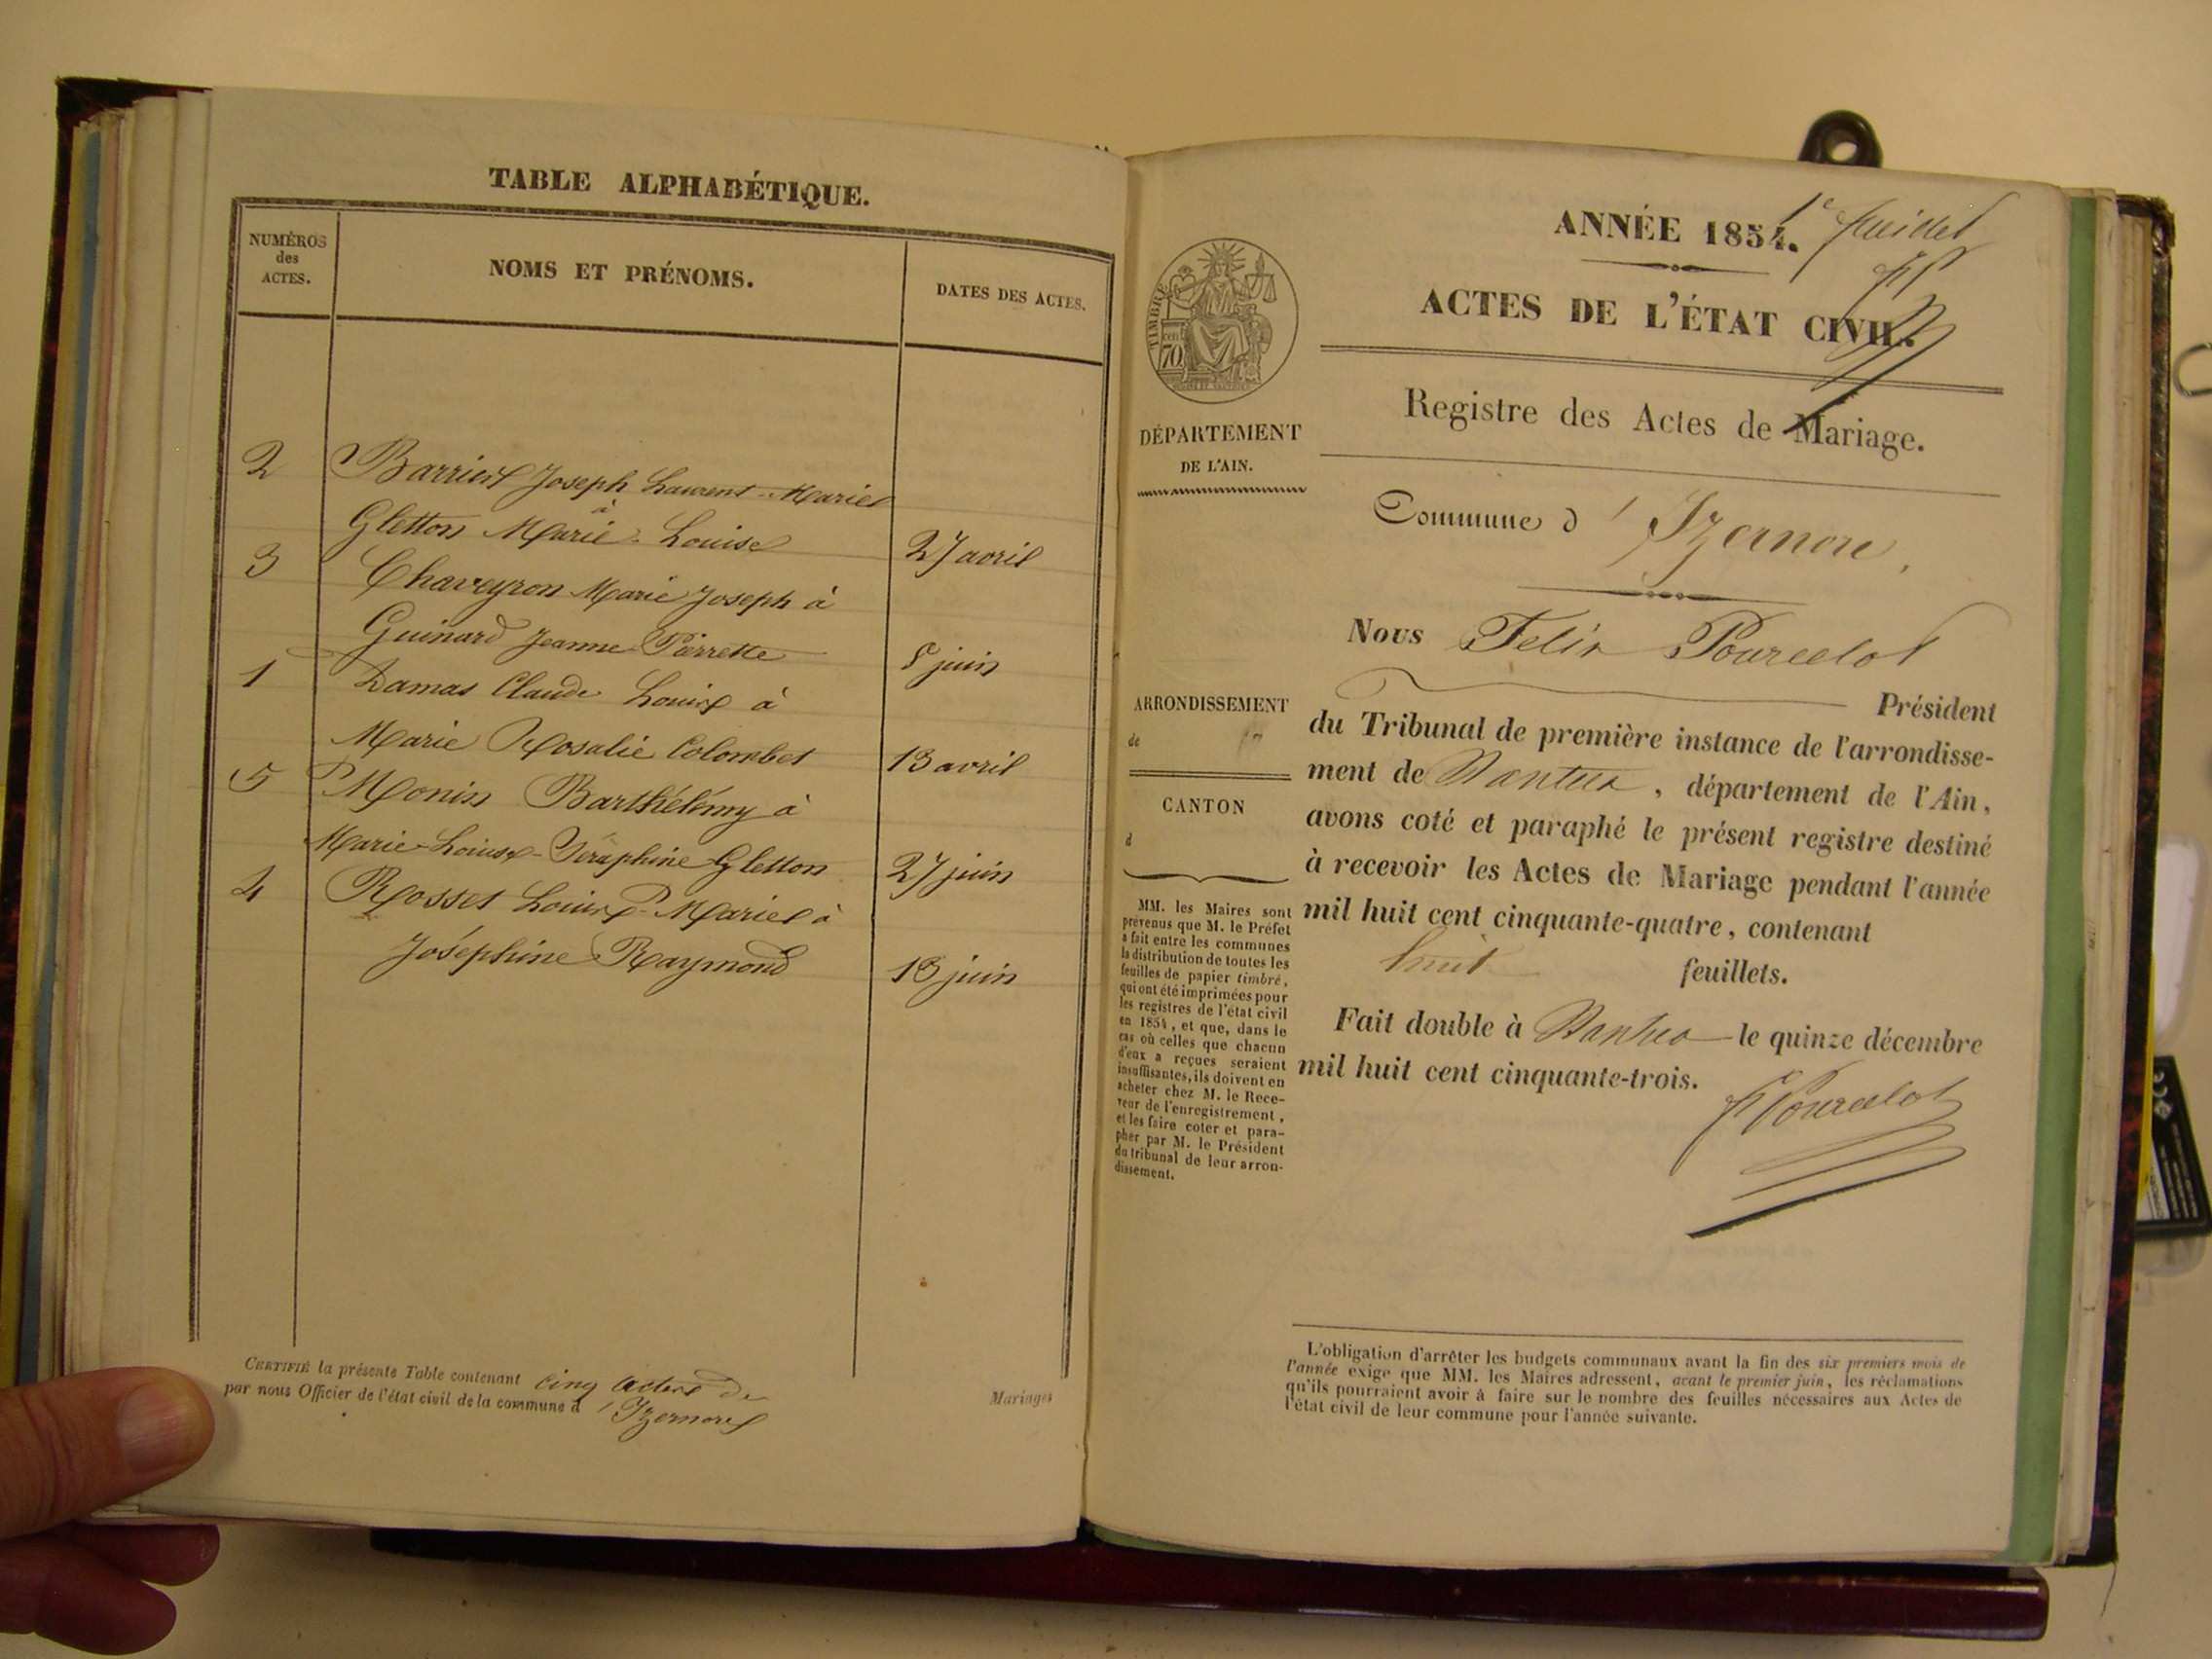 TABLE ALPHABÉTIQUE.
NUMÉROS
des
ACTES.
NOMS ET PRÉNOMS.
DATES DES ACTES.
2 Barriod Joseph Laurent-Marie
à
Gletton Marie-Louise 27 avril
3 Chaveyron Marie Joseph à
Guinard Jeanne-Pierrette 8 juin
1 Damas Claude Louis à
Marie Rosalie Colombet 13 avril
5 Monin Barthélémy à
Marie-Louise-Séraphine Gletton 27 juin
4 Rosset Louis-Marie à
Joséphine Raymond 13 juin
CERTIFIÉ la présente Table contenant cinq actes de
par nous Officier de l'état civil de la commune d'Izernore
Mariages
1e feuillet
ANNÉE 1854.
TIMBRE
70
ACTES DE L'ÉTAT CIVIL.
Registre des Actes de Mariage.
DÉPARTEMENT
DE L'AIN.
Commune d'Izernore
Nous Felix Pourcelot
Président
du Tribunal de première instance de l'arrondisse-
ment de Nantua, département de l'Ain,
avons coté et paraphé le présent registre destiné
à recevoir les Actes de Mariage pendant l'année
mil huit cent cinquante-quatre, contenant
huit feuillets.
Fait double à Nantua le quinze décembre
mil huit cent cinquante-trois.
F Pourcelot
ARRONDISSEMENT
de
CANTON
d
MM. les Maires sont
prévenus que M. le Préfet
a fait entre les communes
la distribution de toutes les
feuilles de papier timbré,
qui ont été imprimées pour
les registres de l'état civil
en 1854, et que, dans le
cas où celles que chacun
d'eux a reçues seraient
insuffisantes, ils doivent en
acheter chez M. le Rece-
veur de l'enregistrement,
et les faire coter et para-
pher par M. le Président
du tribunal de leur arron-
dissement.
L'obligation d'arrêter les budgets communaux avant la fin des six premiers mois de
l'année exige que MM. les Maires adressent, avant le premier juin, les réclamations
qu'ils pourraient avoir à faire sur le nombre des feuilles nécessaires aux Actes de
l'état civil de leur commune pour l'année suivante.